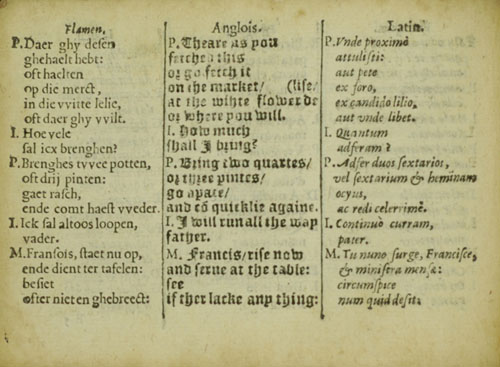 Flamen.
P. Daer ghy desen
ghehaelt hebt:
oft haelten
op die merct,
in die vvitte lelie,
oft daer ghy vvilt.
I. Hoe vele
sal icx brenghen?
P. Brenghes tvvee potten,
oft drij pinten:
gaet rasch,
ende comt haest vveder.
I. Ick sal altoos loopen,
vader.
M. Fransois, staet nu op,
ende dient ter tafelen:
besiet
ofter niet en ghebreect:
Anglois.
P. Theare as you
fetched this
or go fetch it
on the market/ (lise/
at the wihte flower de
or where you will.
I. how much
shall J bring?
P. Bring two quartes/
or three pintes/
go apace/
and cō quicklie againe.
I. J will run all the way
father.
M. Francis/ rise now
and serue at the table:
see
if ther lacke any thing:
Latin.
P. Vnde proximè
attulisti:
aut pete
ex foro,
ex candido lilio,
aut vnde libet.
I. Quantum
adferam?
P. Adfer duos sextarios,
vel sextarium & heminam
ocyus,
ac redi celerrimè.
I. Continuò curram,
pater.
M. Tu nunc surge, Francisce,
& ministra mensæ:
circumspice
num quid desit.